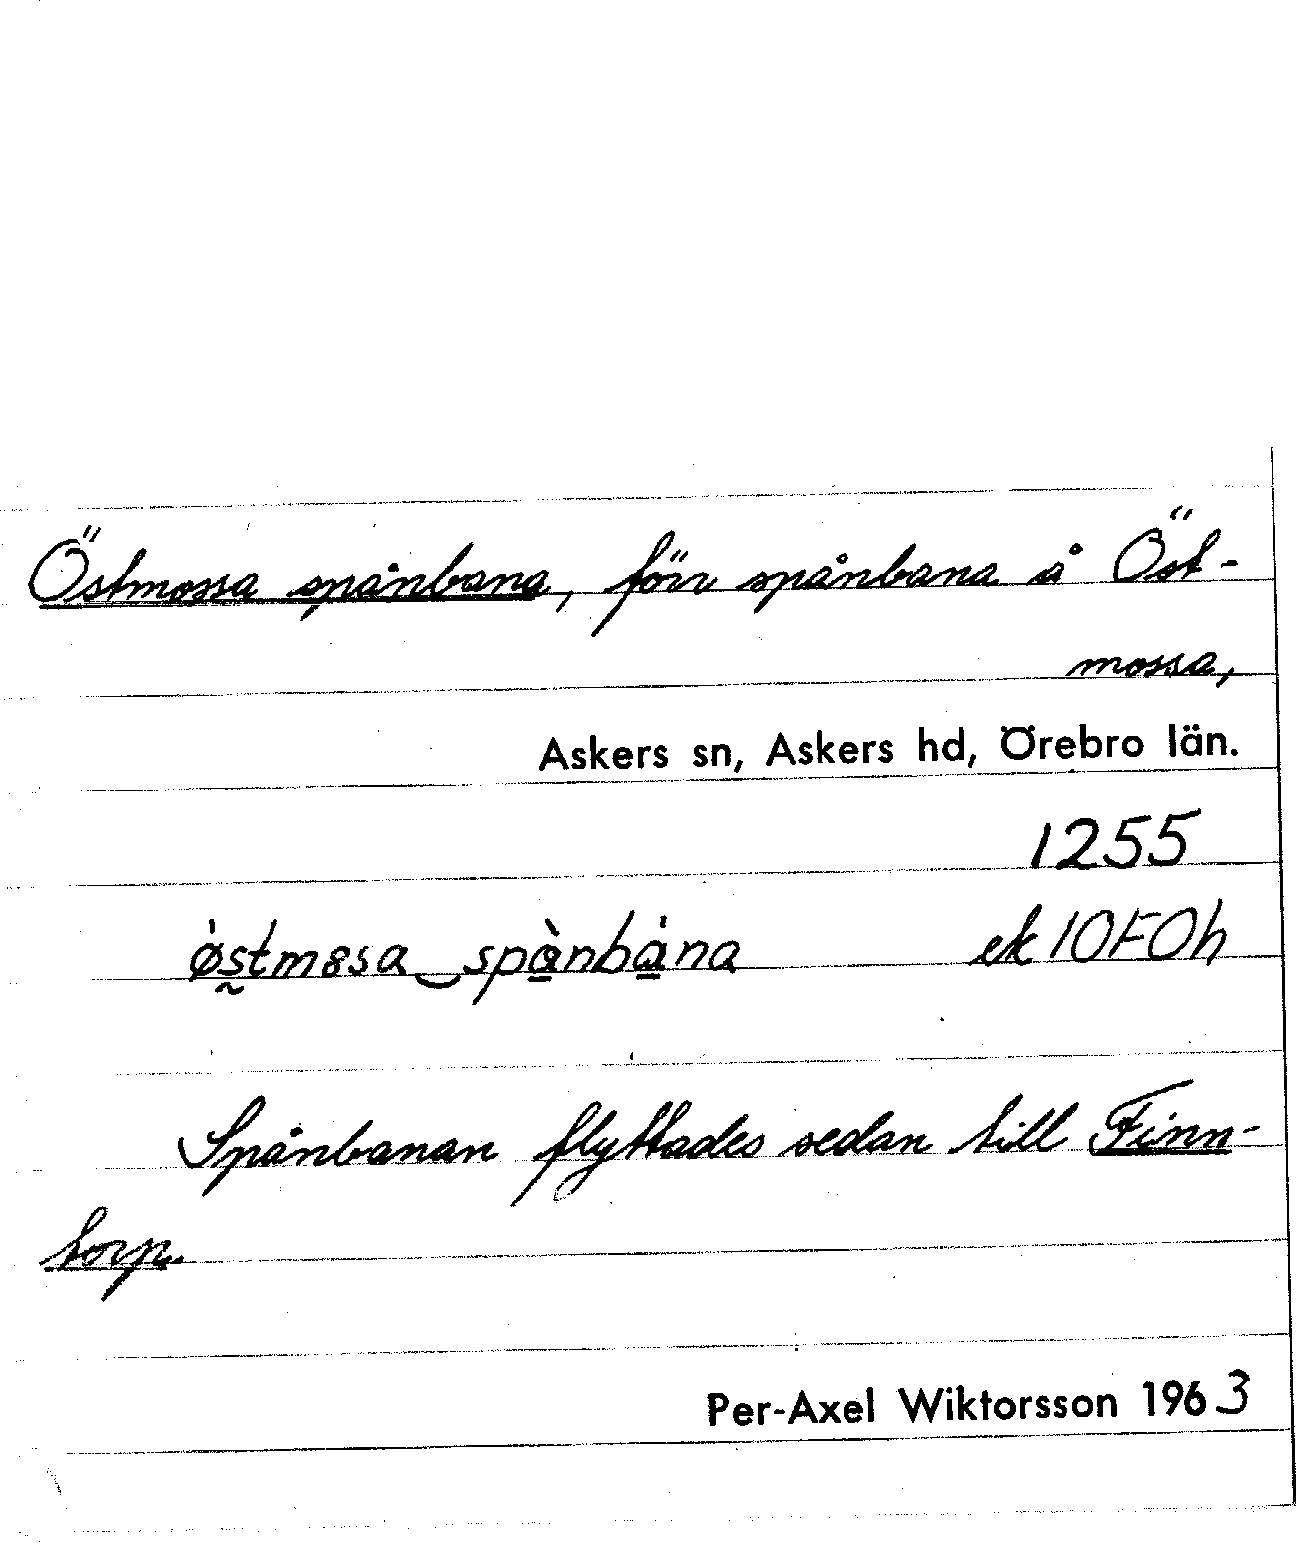 Östmossa spånbana, förr spånbana å Öst-
mossa,
Askers sn, Askers hd, Örebro län.
1255
østm8sa spànbána ek 10F0h
Spånbanan flyttades sedan till Finn-
torp.
Per-Axel Wiktorsson 1963